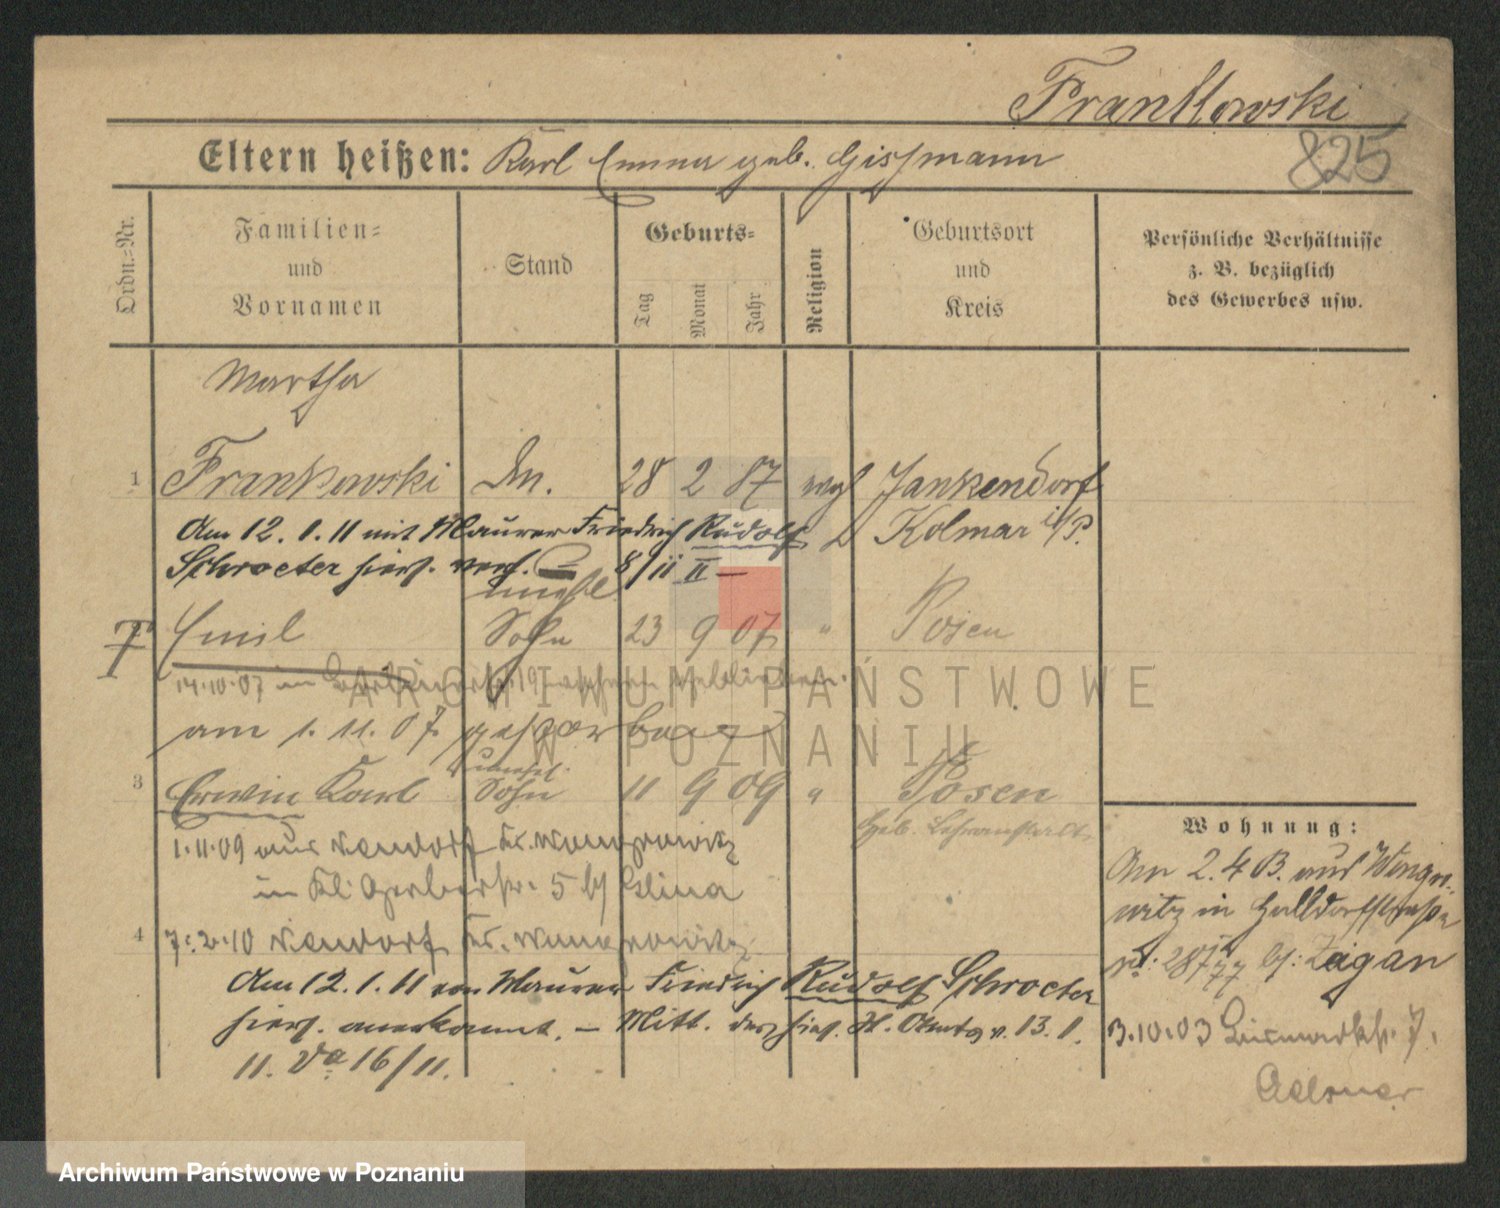 Frankowski
825
Eltern heißen: Karl Emma geb. Gissmann
Ordn.-Nr.
Familien- und Vornamen
Stand
Geburts-
Tag
Monat
Jahr
Religion
Geburtsort und Kreis
Persönliche Verhältnisse z. B. bezüglich des Gewerbes usw.
Martha
1 Frankowski Dn. 28 2 87 evgl Jankendorf
Am 12. 1. 11 mit Maurer Friedrich Rudolf Kolmar i/P.
Schroeter hiers. verh. 8/11 II
unehl
Emil Sohn 23 9 07 " Posen
14.10.07 in
am 1. 11. 07 gestorben
unehl.
3 Erwin Karl Sohn 11 9 09 " Posen
Heb. Lehranstalt
1.11.09 aus Neudorf Kr. Wongrowitz
in Kl. Gerberstr. 5 bj Glina
4 7.2.10 Neudorf Kr. Wongrowitz
Am 12. 1. 11 von Maurer Friedrich Rudolf Schroeter
hiers. anerkannt. — Mitt. des hies. St. Amts v. 13. 1.
11. Va 16/11.
Wohnung:
Am 2. 4 03. aus Wongro-
witz in Halldorfstraße
No. 28 bj: Zaigan
3.10.03 Bismarckstr. 7.
ARCHIWUM PAŃSTWOWE
W POZNANIU
Archiwum Państwowe w Poznaniu